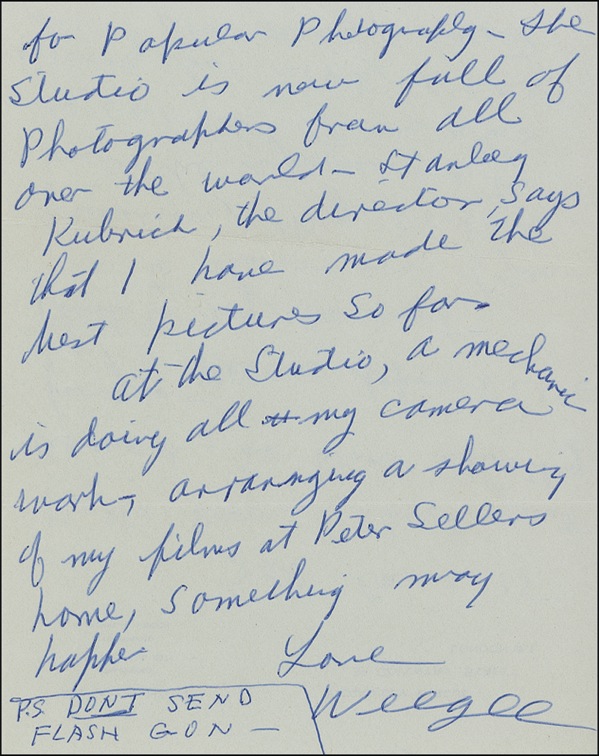 for Popular Photography - the
Studio is now full of
Photographers from all
over the world - Stanley
Kubrick, the director, says
that I have made the
best pictures so far -
at the Studio, a mechanic
is doing all my camera
work, arranging a showing
of my films at Peter Sellers
home, something may
happen
Love
Weegee
P.S. DONT SEND
FLASH GUN -